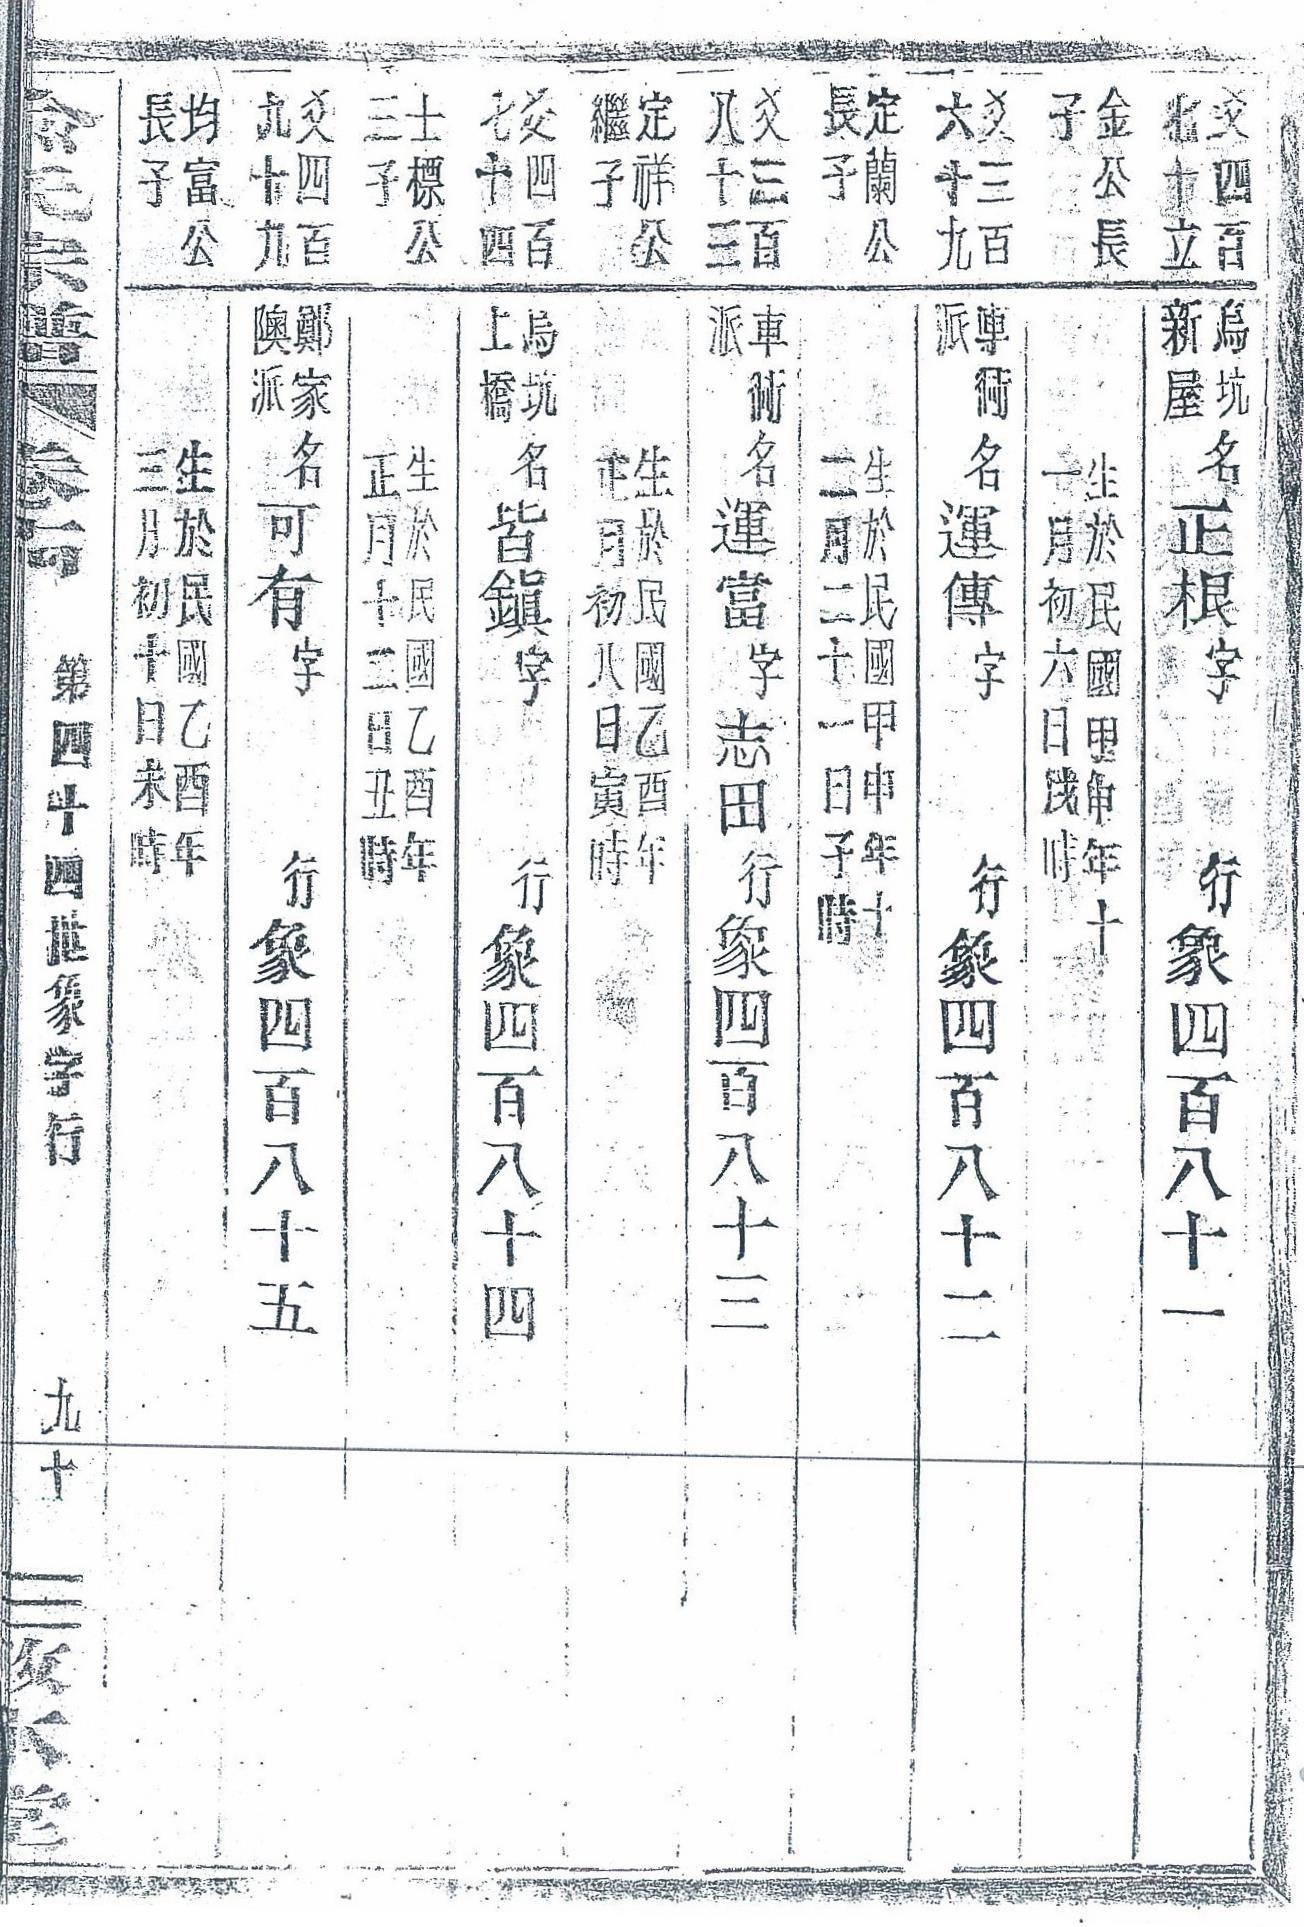 爻四百
北十立
金公長
子
烏坑
新屋
名正根字
行象四百八十一
生於民國甲申年十
一月初六日戌時
爻三百
六十九
定蘭公
長子
車衕
派
名運傳字
行象四百八十二
生於民國甲申年十
二月二十一日子時
爻三百
八十三
定祥公
繼子
車衕
派
名運當字志田
行象四百八十三
生於民國乙酉年
正月初八日寅時
爻四百
七十四
士標公
三子
烏坑
上橋
名皆鎭字
行象四百八十四
生於民國乙酉年
正月十二日丑時
爻四百
九十九
均富公
長子
鄭家
隩派
名可有字
行象四百八十五
生於民國乙酉年
三月初十日未時
氏宗譜
卷
第四十四世象字行
九十
堂